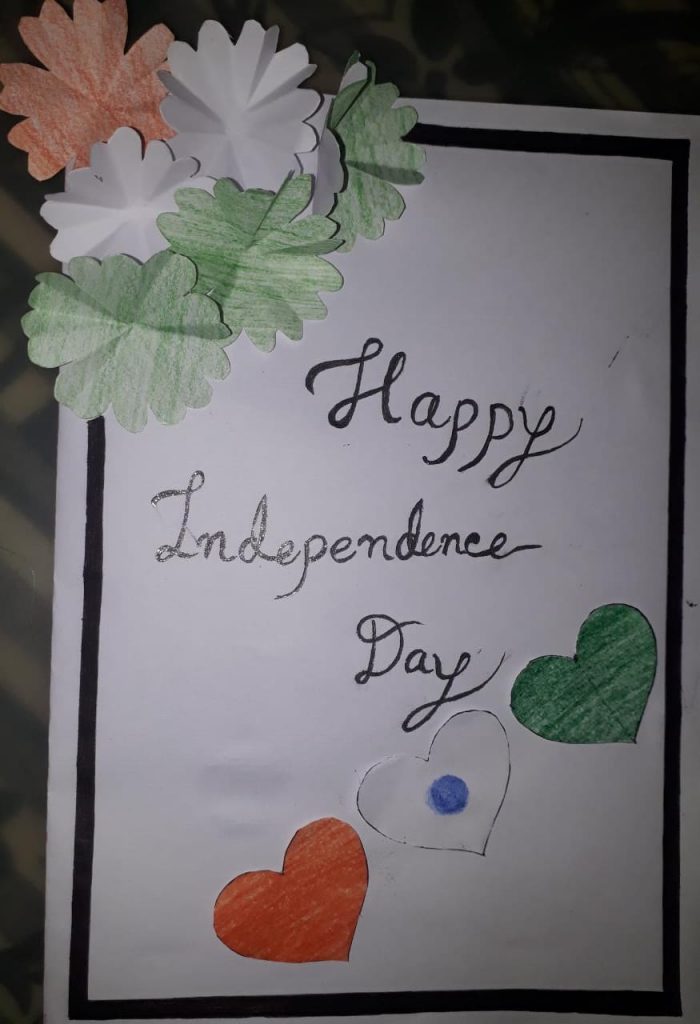 Happy
Independence
Day